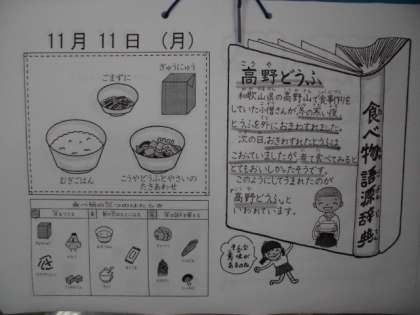 11月11日 (月)
ごまずに
ぎゅうにゅう
むぎごはん
こうやどうふとやさいの
たきあわせ
食べ物の三つのはたらき
こうや
高野どうふ
和歌山県の高野山で食事作りを
していた小僧さんが、冬の寒い夜、
とうふを外におきわすれました。
次の日、おきわすれたとうふは
こおっていましたが、煮て食べてみると
とてもおいしかったそうです。
このようにしてうまれたのが
高野どうふと
いわれています。
食べ物語源辞典
そんな
意味が
あるのね